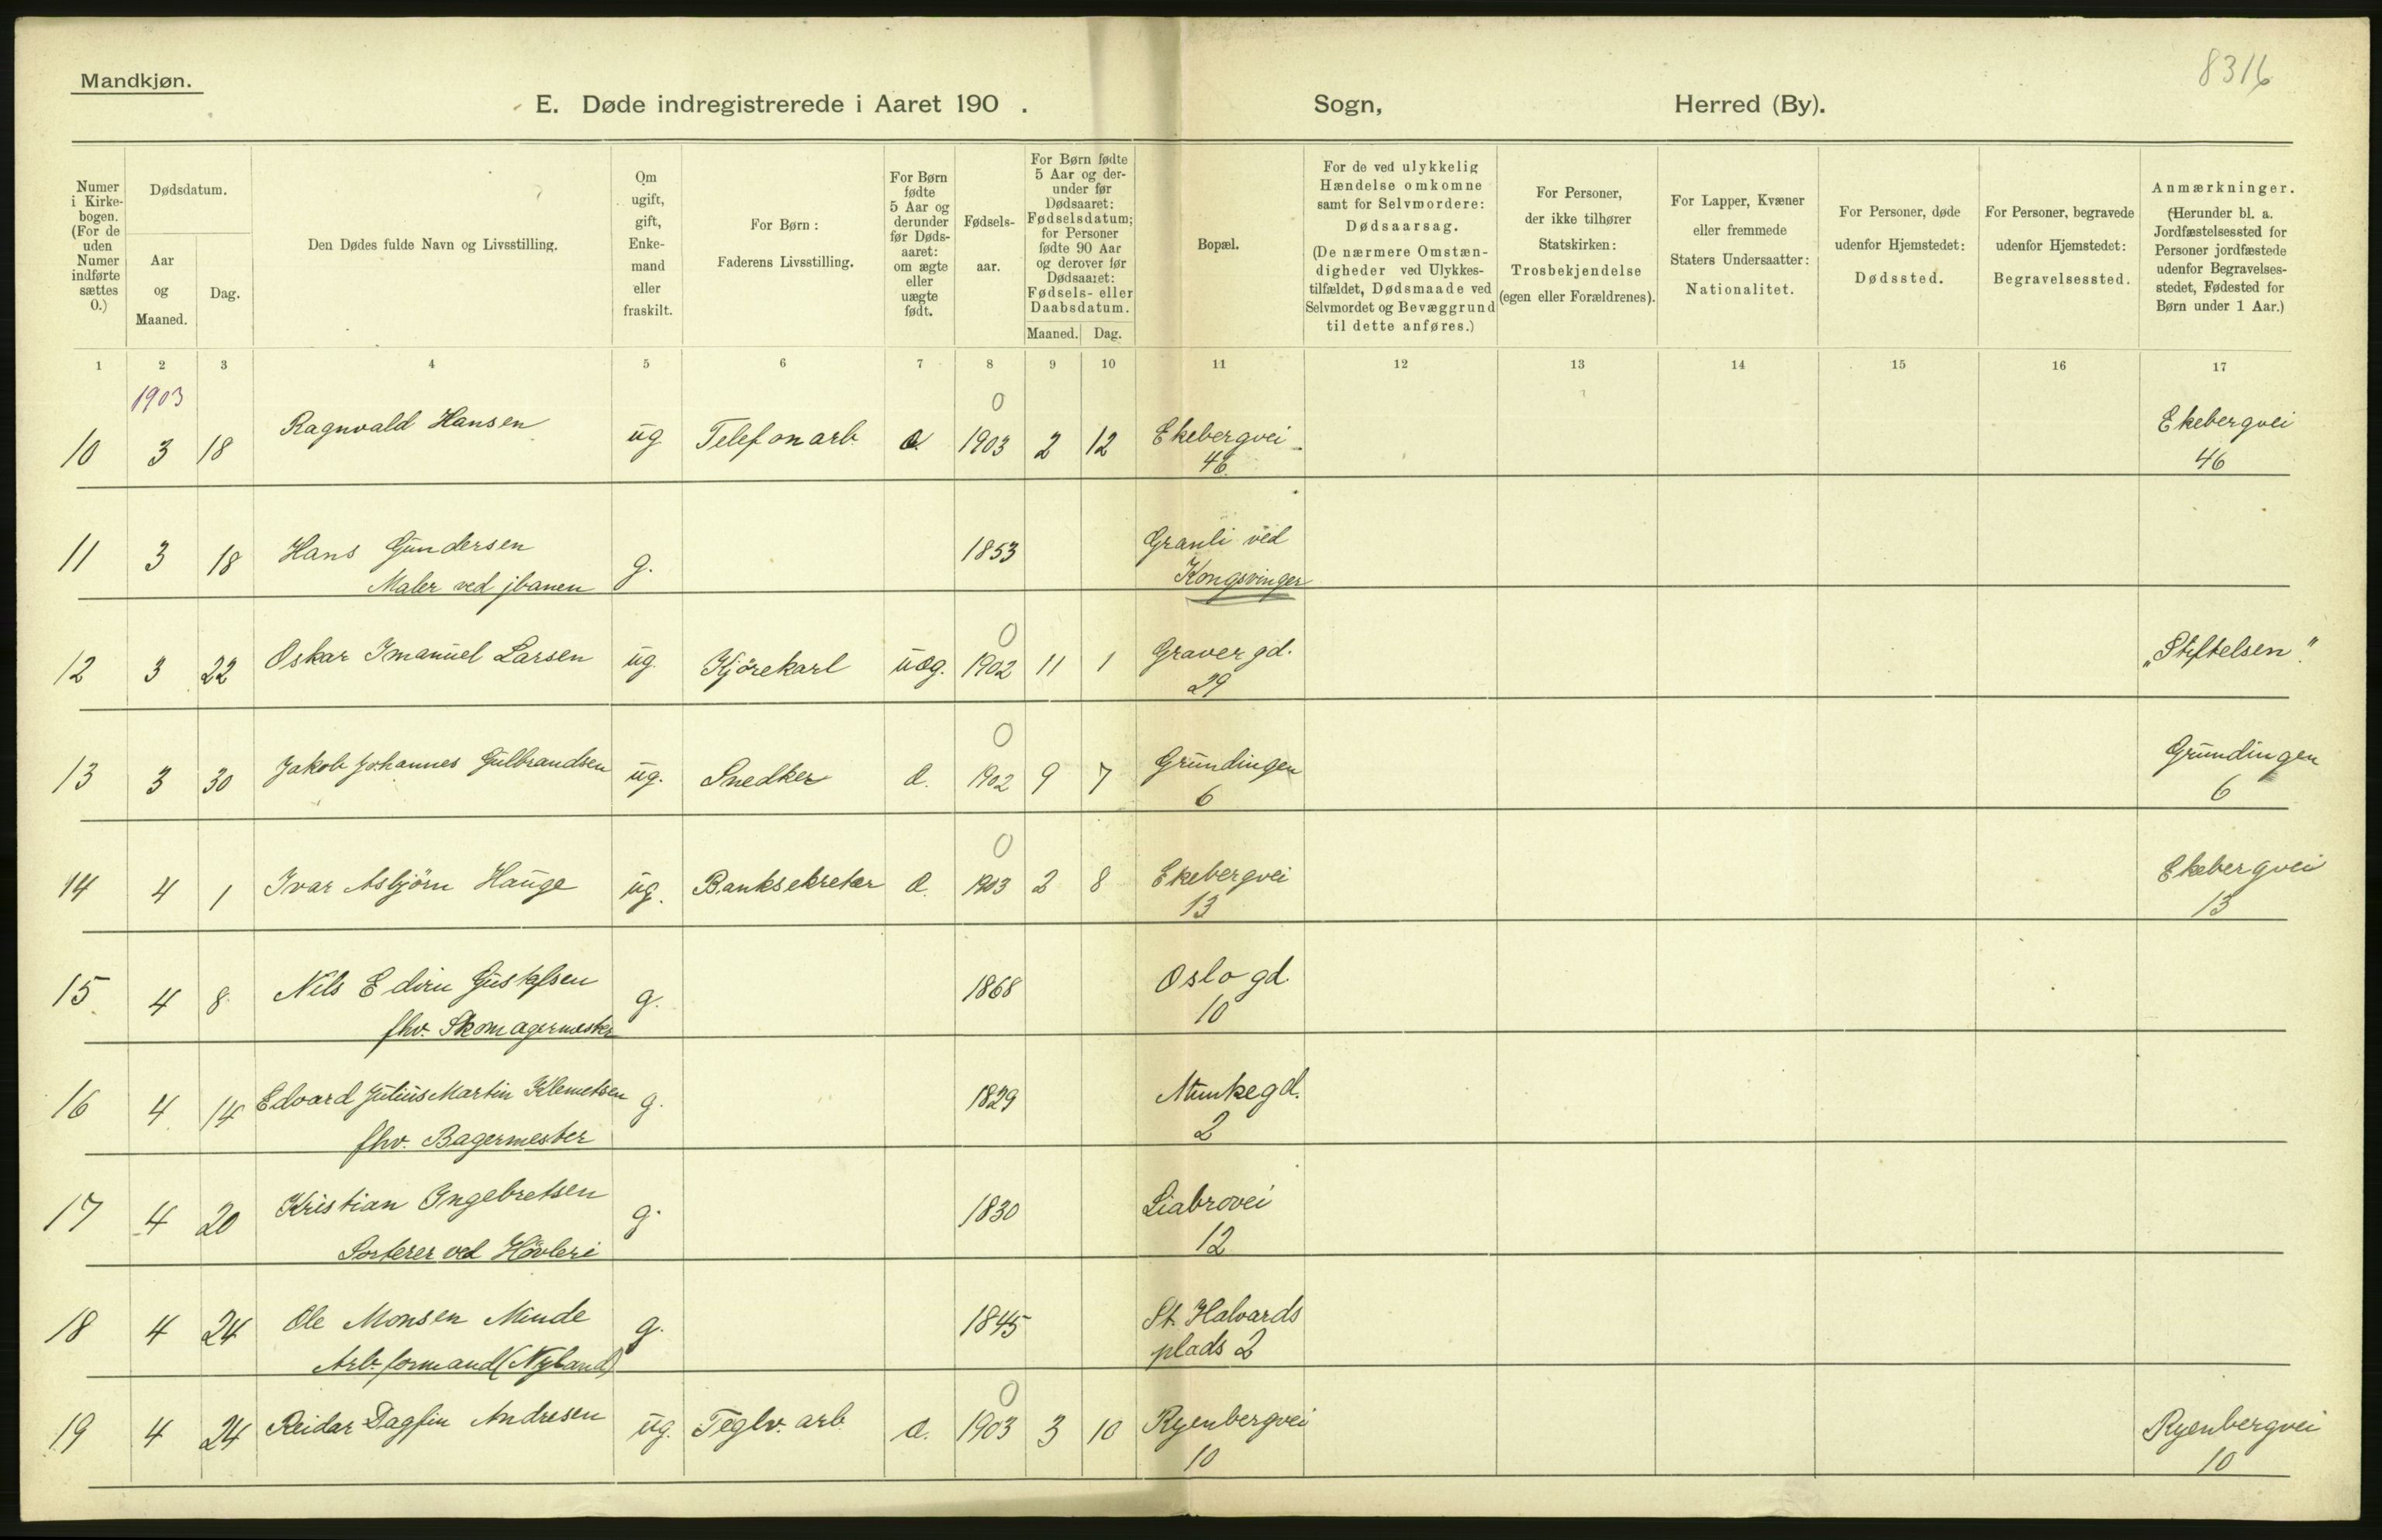 8316
Mandkjøn.
E. Døde indregistrerede i Aaret 190 . Sogn, Herred (By).
Numer i Kirke-bogen. (For de uden Numer indførte sættes 0.)
Dødsdatum.
Aar og Maaned.
Dag.
Den Dødes fulde Navn og Livsstilling.
Om ugift, gift, Enke-mand eller fraskilt.
For Børn: Faderens Livsstilling.
For Børn fødte 5 Aar og derunder før Døds-aaret: om ægte eller uægte født.
Fødsels-aar.
For Børn fødte 5 Aar og der-under før Dødsaaret: Fødselsdatum; for Personer fødte 90 Aar og derover før Dødsaaret: Fødsels- eller Daabsdatum.
Maaned. Dag.
Bopæl.
For de ved ulykkelig Hændelse omkomne samt for Selvmordere: Dødsaarsag. (De nærmere Omstæn-digheder ved Ulykkes-tilfældet, Dødsmaade ved Selvmordet og Bevæggrund til dette anføres.)
For Personer, der ikke tilhører Statskirken: Trosbekjendelse (egen eller Forældrenes).
For Lapper, Kvæner eller fremmede Staters Undersaatter: Nationalitet.
For Personer, døde udenfor Hjemstedet: Dødssted.
For Personer, begravede udenfor Hjemstedet: Begravelsessted.
Anmærkninger. (Herunder bl. a. Jordfæstelsessted for Personer jordfæstede udenfor Begravelses-stedet, Fødested for Børn under 1 Aar.)
1 2 3 4 5 6 7 8 9 10 11 12 13 14 15 16 17
1903 0
10 3 18 Ragnvald Hansen ug Telefonarb. 1903 2 12 Ekebergvei Ekebergvei
46 46
11 3 18 Hans Gundersen g. 1853 Granli ved
Maler ved jbanen Kongsvinger
0
12 3 22 Oskar Imanuel Larsen ug. Kjørekarl uæg. 1902 11 1 Gravergd. „Stiftelsen".
29
0
13 3 30 Jakob Johannes Gulbrandsen ug. Snedker 1902 9 7 Grundingen Grundingen
6 6
0
14 4 1 Ivar Asbjörn Hauge ug. Banksekretær 1903 2 8 Ekebergvei Ekebergvei
13 13
15 4 8 Nils Edvin Gustafsen g. 1868 Oslogd.
fhv. Skomagermester 10
16 4 14 Edvard Julius Martin Klemetsen g. 1829 Munkegd.
fhv. Bagermester 2
17 4 20 Kristian Ingebretsen g. 1830 Liabrovei
Sorterer ved Hövleri 12
18 4 24 Ole Monsen Minde g. 1845 St. Halvards
Arb. formand (Nyland) plads 2
0
19 4 24 Reidar Dagfin Andresen ug. Teglv. arb. 1903 3 10 Ryenbergvei Ryenbergvei
10 10